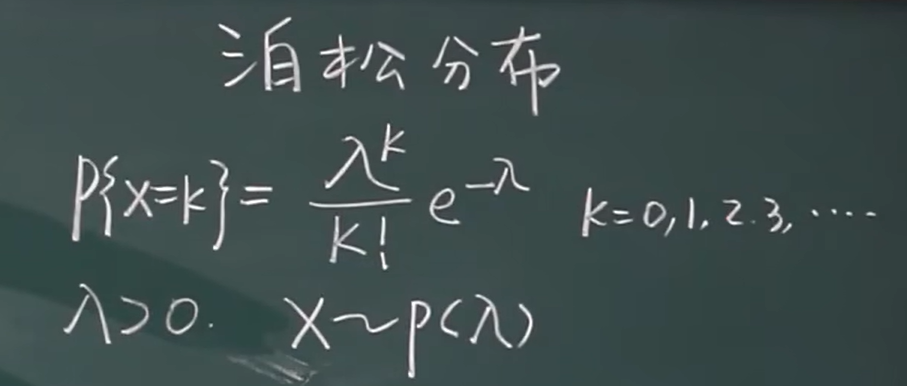 泊松分布
P{X=k}= λ^k/k! e^-λ k=0,1,2.3,····
λ>0. X~P(λ)